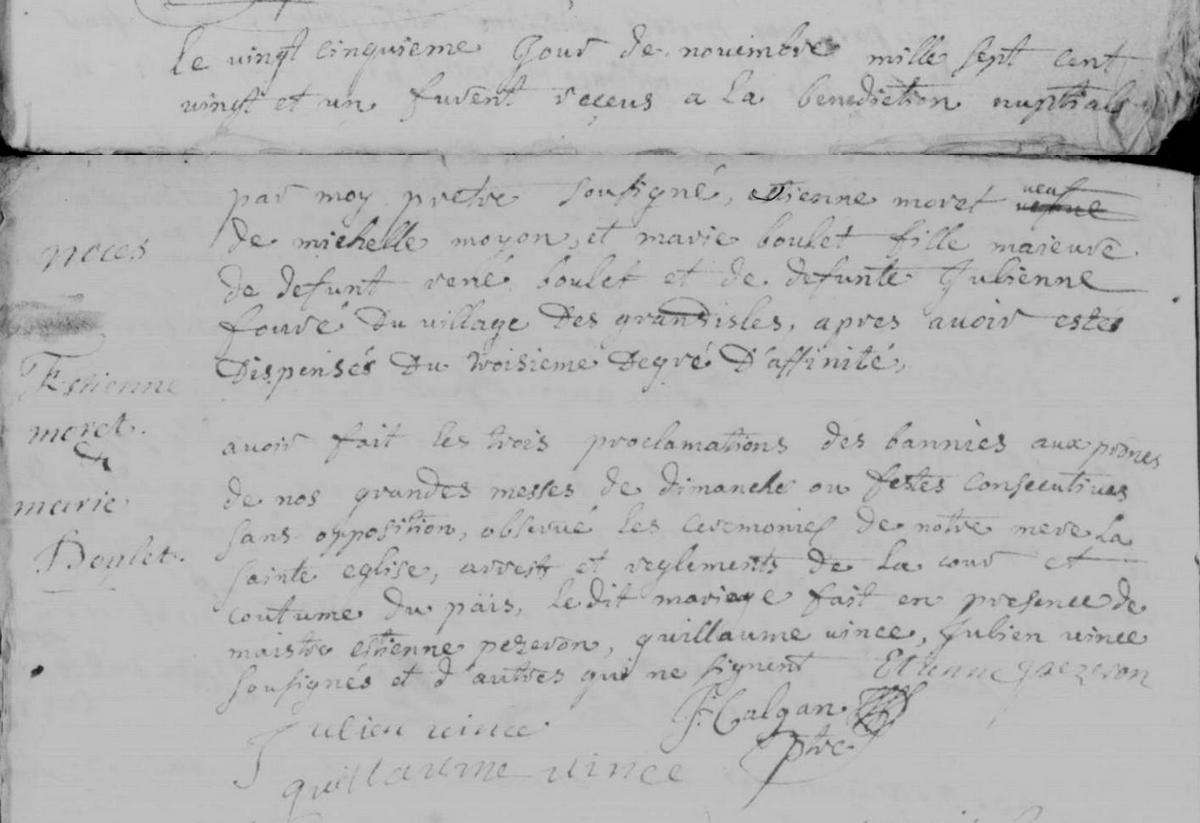 Le vingt cinquieme Jour de novembre mille sept cent
vingt et un furent receus a La benediction nuptiale
par moy pretre sousigné, etienne moret veuf
noces
de michelle moyon, et marie boulet fille maieure
de defunt rené boulet et de defunte Julienne
fouré Du village Des grandisles, apres avoir estes
Dispensés Du troisieme Degré D'affinité,
Estienne
moret.
&
marie
Boulet.
avoir fait les trois proclamations des bannies aux prônes
de nos grandes messes de dimanche ou festes consecutives
sans opposition, observé les ceremonies de notre mere La
sainte eglise, arrests et reglements de La cour et
coutume du päis, ledit mariage fait en presence de
maistre etienne pezeron, guillaume vince, Julien vince
sousignés et d'autres qui ne signent Etienne pezeron
Julien vince J. Calgan
ptre
guillaume vince